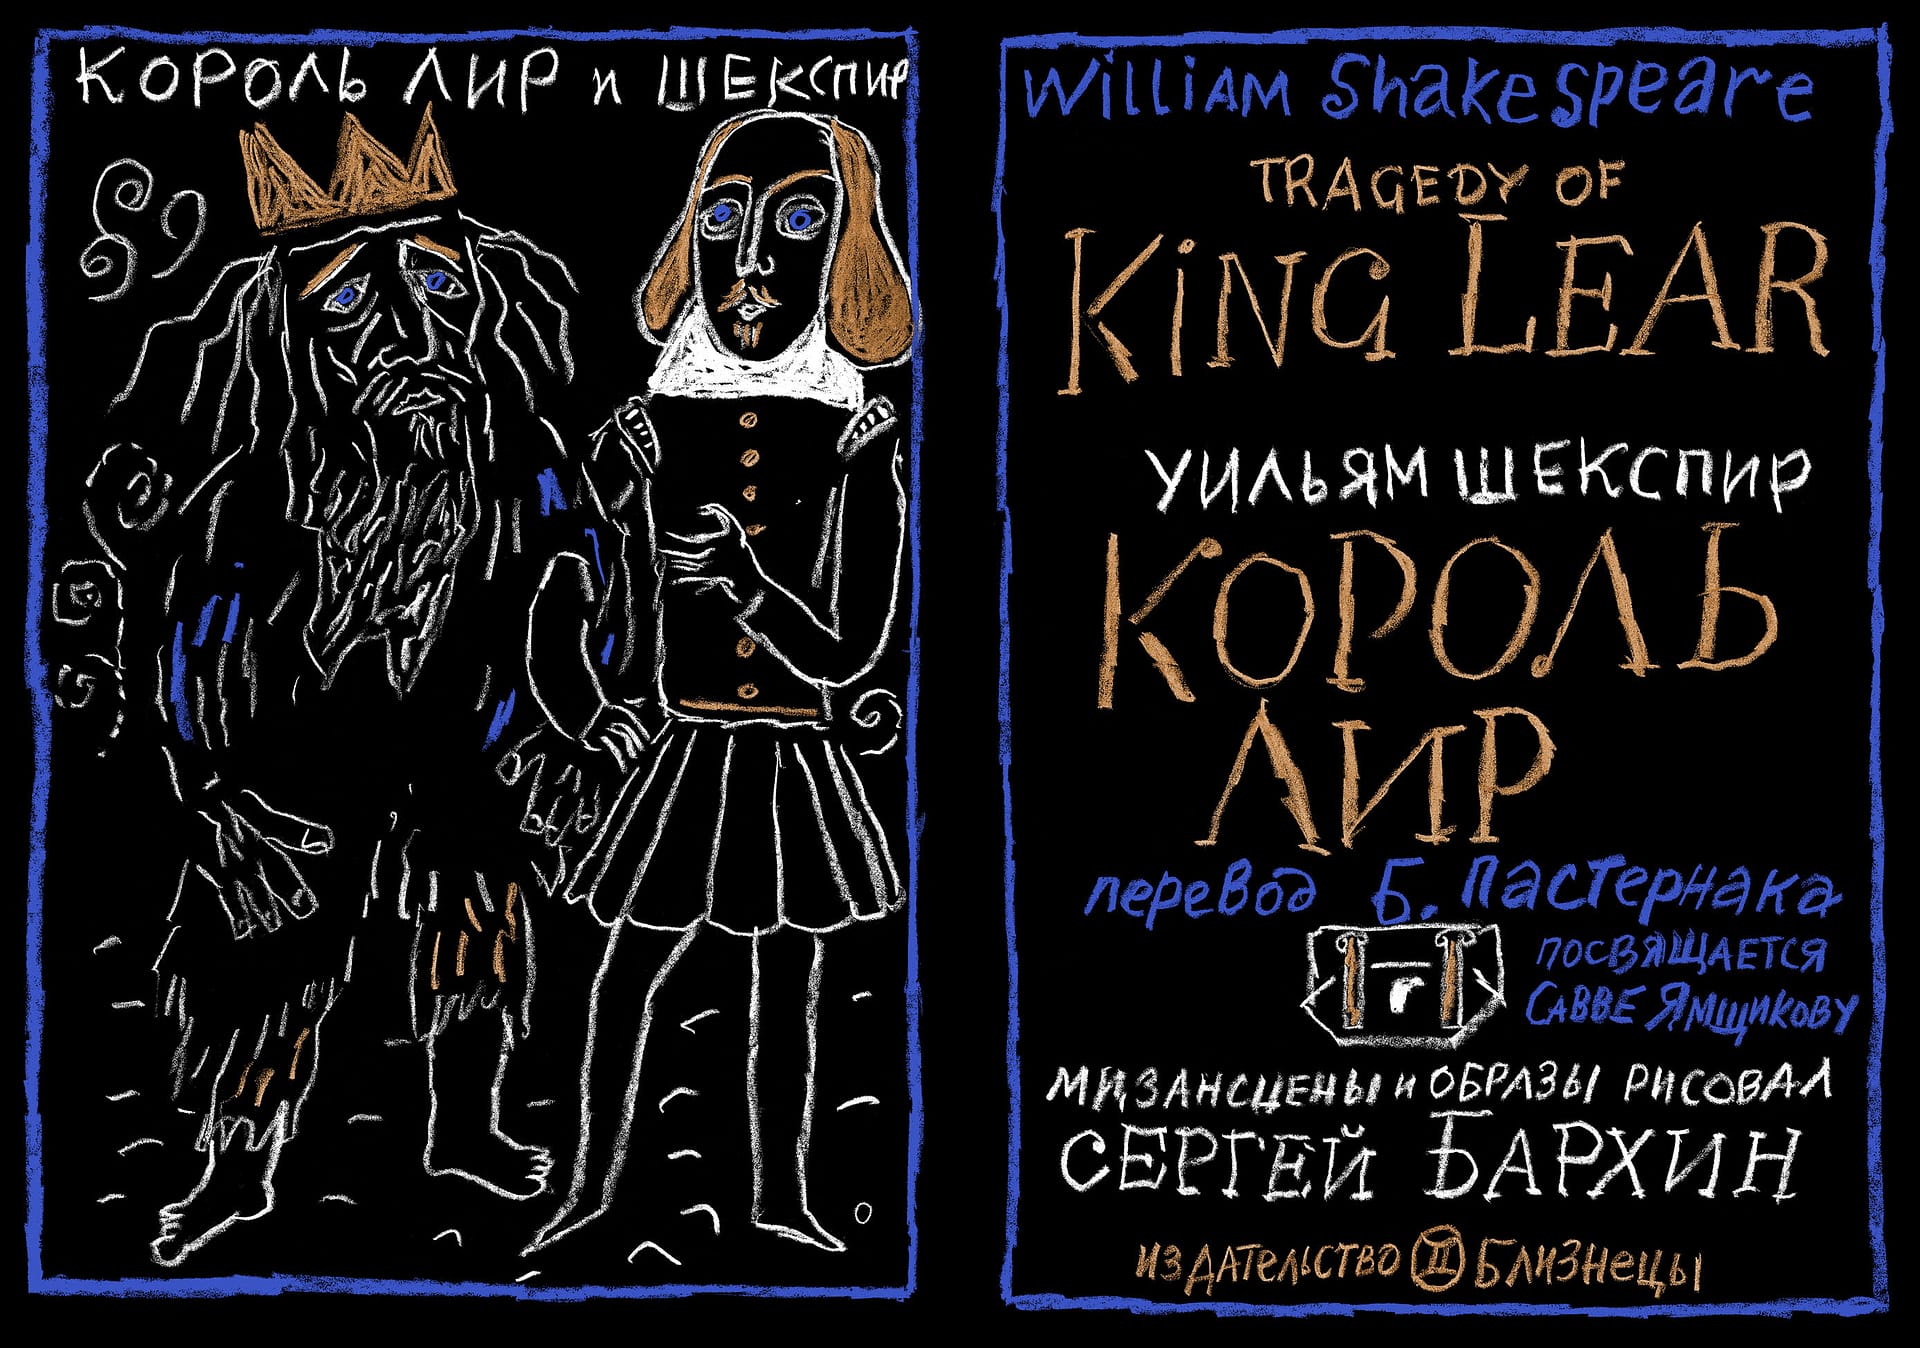 КОРОЛЬ ЛИР и ШЕКСПИР
William Shakespeare
TRAGEDY OF
KiNG LEAR
УИЛЬЯМ ШЕКСПИР
КОРОЛЬ
ЛИР
перевод Б. Пастернака
ПОСВЯЩАЕТСЯ
САВВЕ ЯМЩИКОВУ
МИЗАНСЦЕНЫ и ОБРАЗЫ РИСОВАЛ
СЕРГЕЙ БАРХИН
ИЗДАТЕЛЬСТВО II БЛИЗНЕЦЫ